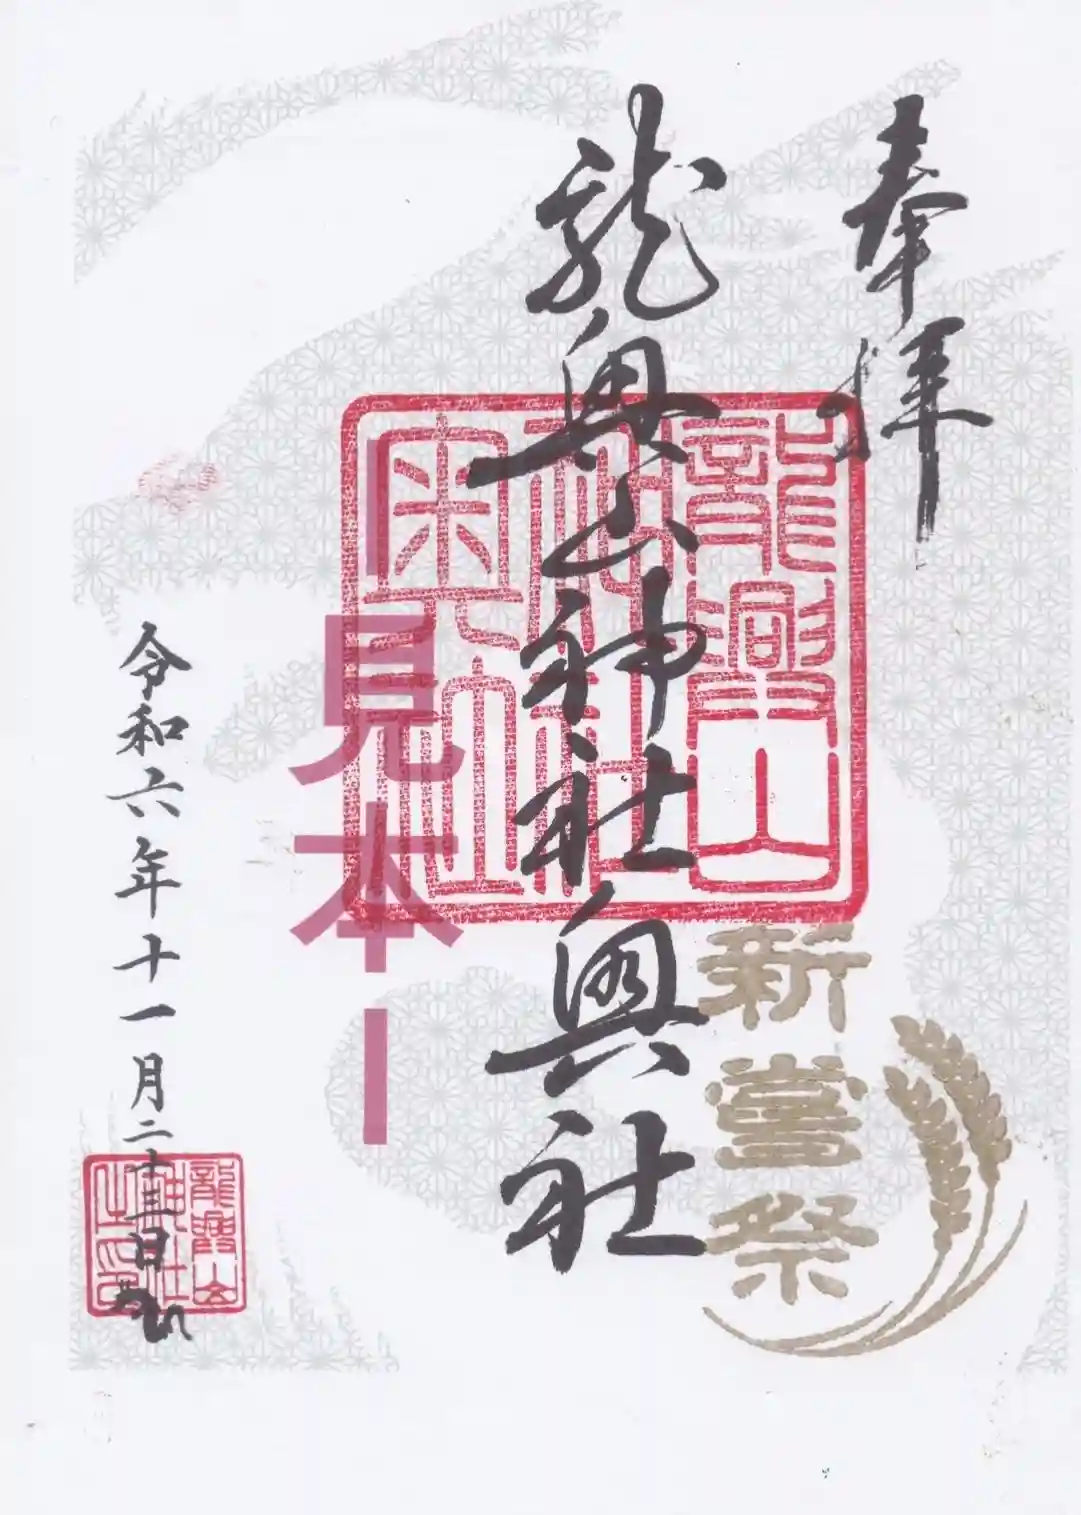 奉拝
龍興山神社奥社
龍興山
神社
奥社
新嘗祭
ー見本ー
令和六年十一月二十三日
龍興山
神社
之印